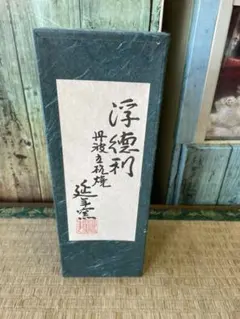 浮徳利
丹波立杭焼
延年窯